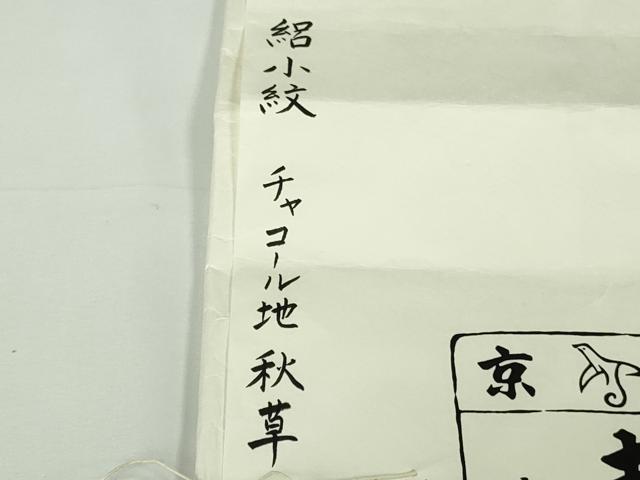 絽小紋 チャコール地 秋草
京